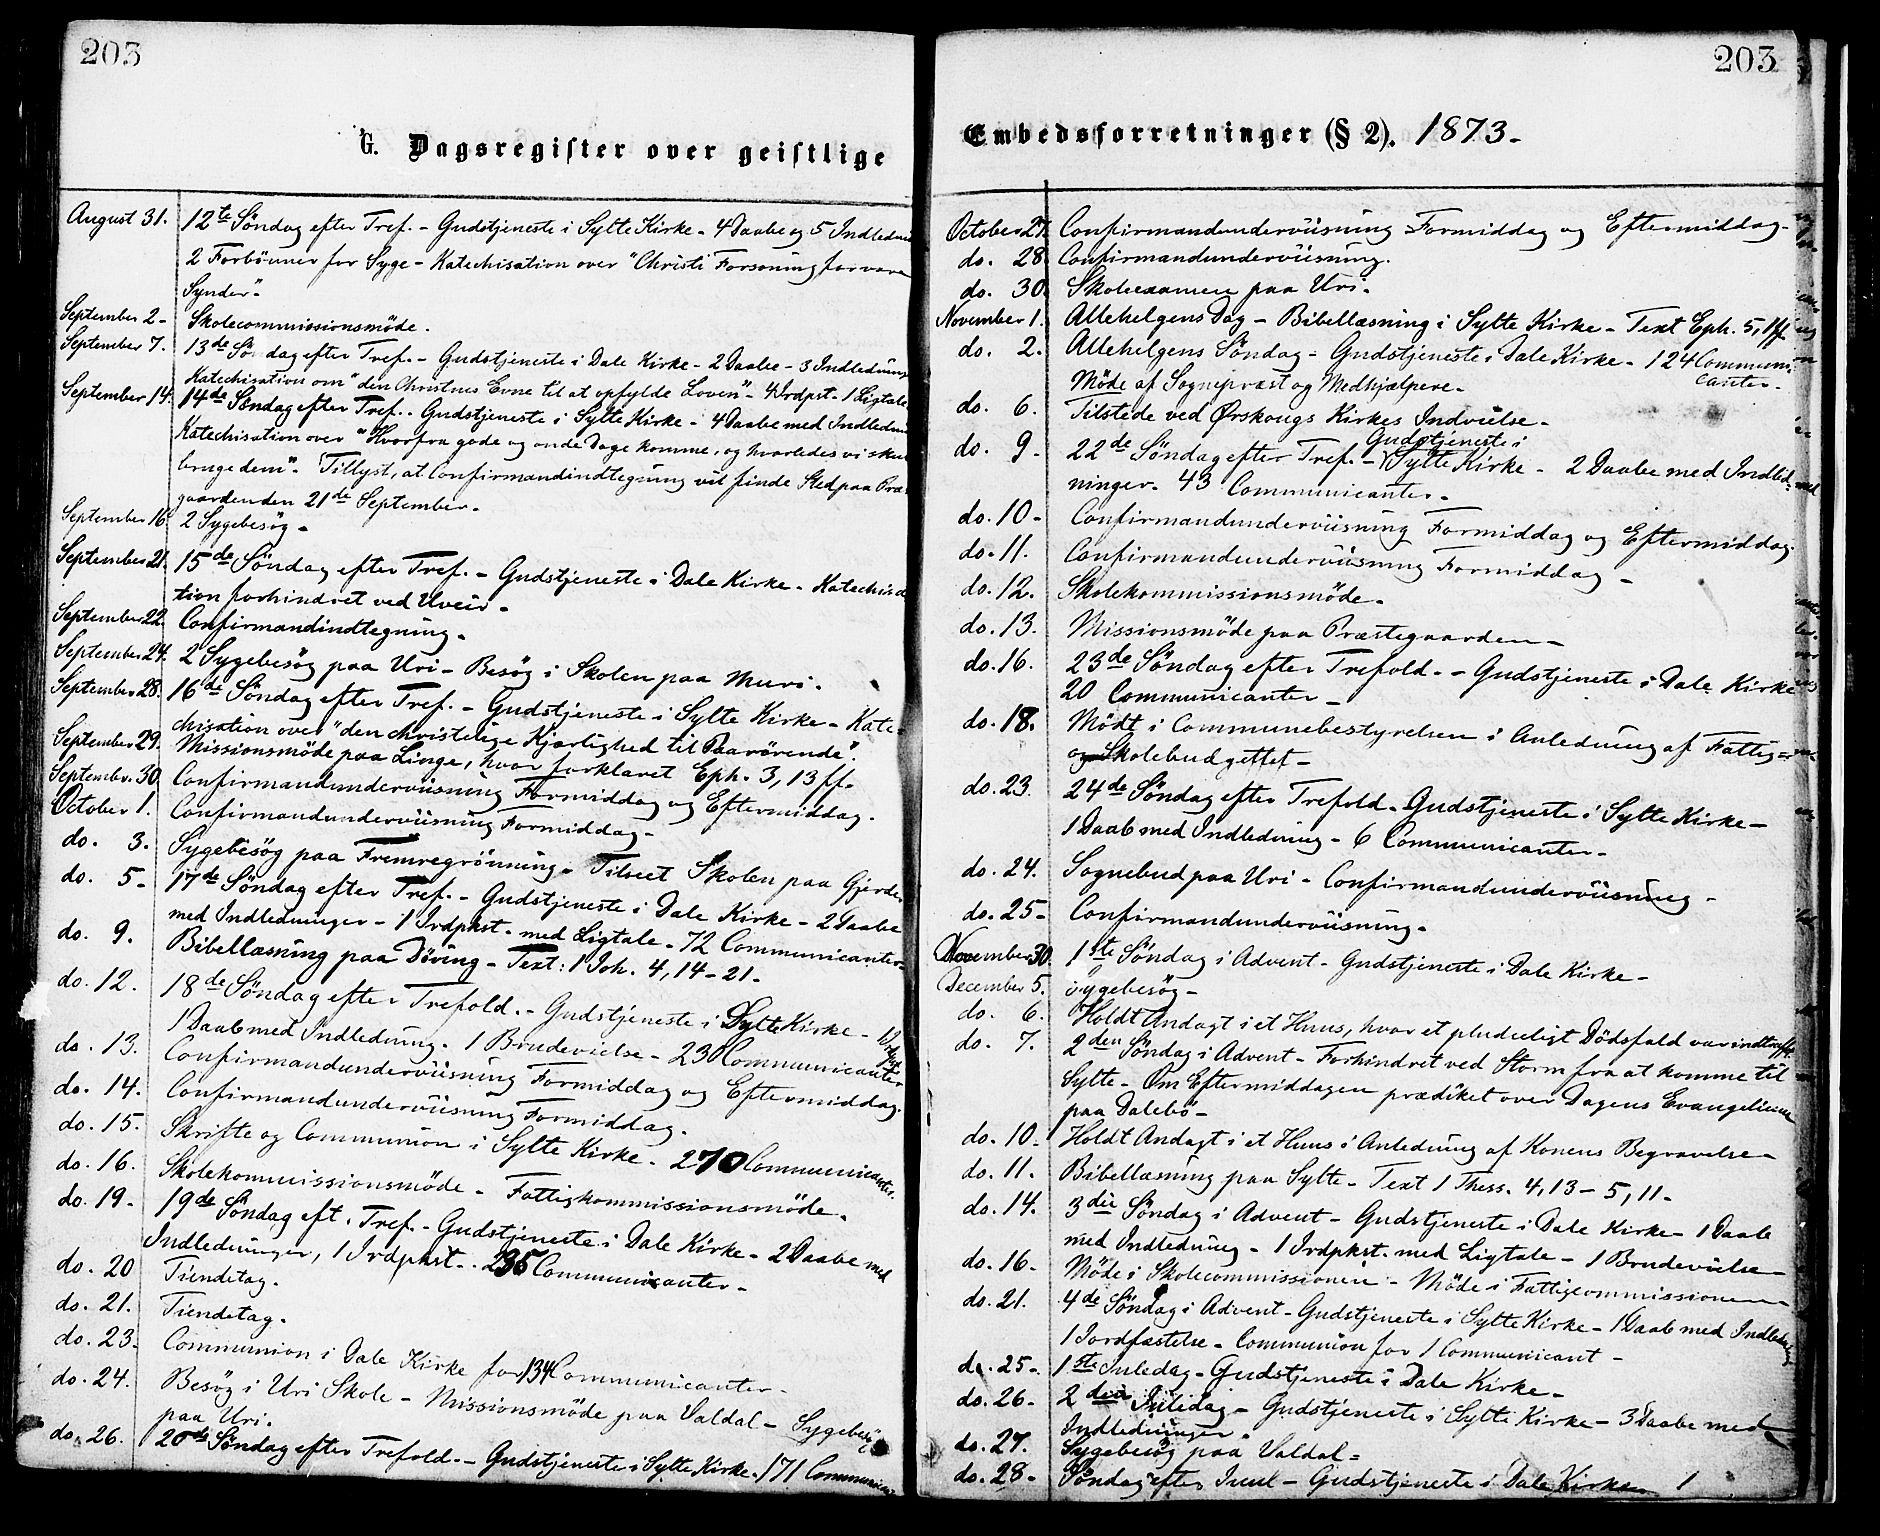 203
G. Dagsregister over geistlige
August 31. 12te Söndag efter Tref. - Gudstjeneste i Sylte Kirke - 4 Daabe og 5 Indledn
2 Forbönner for Syge - Katechisation over "Christi Forsoning for vore
Synder".
September 2 - Skolecommissionsmöde.
September 7. 13de Söndag efter Tref. - Gudstjeneste i Dale Kirke - 2 Daabe - 3 Indledning
Katechisation om "den Christnes Evne til at opfylde Loven" - 4 Irdpst. 1 Ligtale
September 14. 14de Söndag efter Tref. - Gudstjeneste i Sylte Kirke - 4 Daabe med Indledn
Katechisation over "Hvorfra gode og onde Dage komme, og hvorledes vi skul
bruge dem". Tillyst, at Confirmandindtegning vil finde Sted paa Præ-
gaarden den 21de September.
September 16. 2 Sygebesög -
September 21. 15de Söndag efter Tref. - Gudstjeneste i Dale Kirke - Katechisa
tion forhindret ved Uveir -
September 22. Confirmandindtegning.
September 24. 2 Sygebesög paa Uri - Besög i Skolen paa Muri.
September 28. 16de Söndag efter Tref. - Gudstjeneste i Sylte Kirke - Kate-
chisation over "den christelige Kjærlighed til Paarörende".
September 29. Missionsmöde paa Linge, hvor forklaret Eph. 3, 13 ff.
September 30. Confirmandunderviisning Formiddag og Eftermiddag.
October 1. Confirmandunderviisning Formiddag -
do. 3. Sygebesög paa Fremregrönning - Tilseet Skolen paa Gjerde
do. 5 - 17de Söndag efter Tref. - Gudstjeneste i Dale Kirke - 2 Daabe
med Indledninger - 1 Irdpkst. med Ligtale - 72 Communicanter -
do. 9. Bibellæsning paa Döving - Text: 1 Joh. 4, 14-21 -
do. 12. 18de Söndag efter Trefold. - Gudstjeneste i Sylte Kirke -
1 Daab med Indledning. 1 Brudevielse - 230 Communicanter
do. 13. Confirmandunderviisning Formiddag og Eftermiddag.
do. 14. Confirmandunderviisning Formiddag.
do. 15. Skrifte og Communion i Sylte Kirke. 270 Communicanter.
do. 16. Skolekommissionsmöde - Fattigkommissionsmöde.
do. 19 - 19de Söndag eft. Tref. - Gudstjeneste i Dale Kirke - 2 Daabe med
Indledninger, 1 Irdpkst. - 235 Communicanter -
do. 20 Tiendetag.
do. 21. Tiendetag.
do. 23. Communion i Dale Kirke for 134 Communicanter -
do. 24. Besög i Uri Skole - Missionsmöde paa Valdal - Sygebesög
paa Uri.
do. 26. 20de Söndag efter Trefold. - Gudstjeneste i Sylte Kirke. 171 Communica
203
Embedsforretninger (§ 2). 1873 -
October 27. Confirmandunderviisning Formiddag og Eftermiddag -
do. 28 Confirmandunderviisning.
do. 30. Skoleexamen paa Uri.
November 1. Allehelgens Dag - Bibellæsning i Sylte Kirke - Text Eph. 5, 1 ff
do. 2. Allehelgens Söndag - Gudstjeneste i Dale Kirke - 124 Communi-
canter -
Möde af Sognepræst og Medhjælpere -
do. 6. Tilstede ved Ørskougs Kirkes Indvielse -
do. 9 - 22de Söndag efter Tref. - Gudstjeneste i Sylte Kirke - 2 Daabe med Indled-
ninger. 43 Communicanter -
do. 10 - Confirmandunderviisning Formiddag og Eftermiddag.
do. 11. Confirmandunderviisning Formiddag -
do. 12. Skolekommissionsmöde -
do. 13. Missionsmöde paa Præstegaarden -
do. 16. 23de Söndag efter Trefold. - Gudstjeneste i Dale Kirke
20 Communicanter -
do. 18. Mödt i Communebestyrelsen i Anledning af Fattig-
og Skolebudgettet -
do. 23. 24de Söndag efter Trefold - Gudstjeneste i Sylte Kirke -
1 Daab med Indledning - 6 Communicanter -
do. 24. Sognebud paa Uri - Confirmandunderviisning -
do. 25 - Confirmandunderviisning.
November 30. 1ste Söndag i Advent - Gudstjeneste i Dale Kirke -
December 5. Sygebesög -
do. 6. Holdt Andagt i et Huus, hvor et pludseligt Dödsfald var indtruffet.
do. 7. 2den Söndag i Advent - Forhindret ved Storm fra at komme til
Sylte - Om Eftermiddagen prædiket over Dagens Evangelium
paa Dalebö -
do. 10. Holdt Andagt i et Huus i Anledning af Konens Begravelse -
do. 11. Bibellæsning paa Sylte - Text 1 Thess. 4, 13 - 5, 11 -
do. 14. 3die Söndag i Advent - Gudstjeneste i Dale Kirke - 1 Daab
med Indledning - 1 Irdpkst. med Ligtale - 1 Brudevielse -
do. 16 - Möde i Skolecommissionen - Möde i Fattigcommissionen -
do. 21. 4de Söndag i Advent - Gudstjeneste i Sylte Kirke - 1 Daab med Indledning
1 Jordfæstelse - Communion for 1 Communicant -
do. 25 - 1ste Juledag - Gudstjeneste i Dale Kirke -
do. 26 - 2den Juledag - Gudstjeneste i Sylte Kirke - 3 Daabe med
Indledninger
do. 27. Sygebesög paa Valdal -
do. 28 - Söndag efter Juul - Gudstjeneste i Dale Kirke